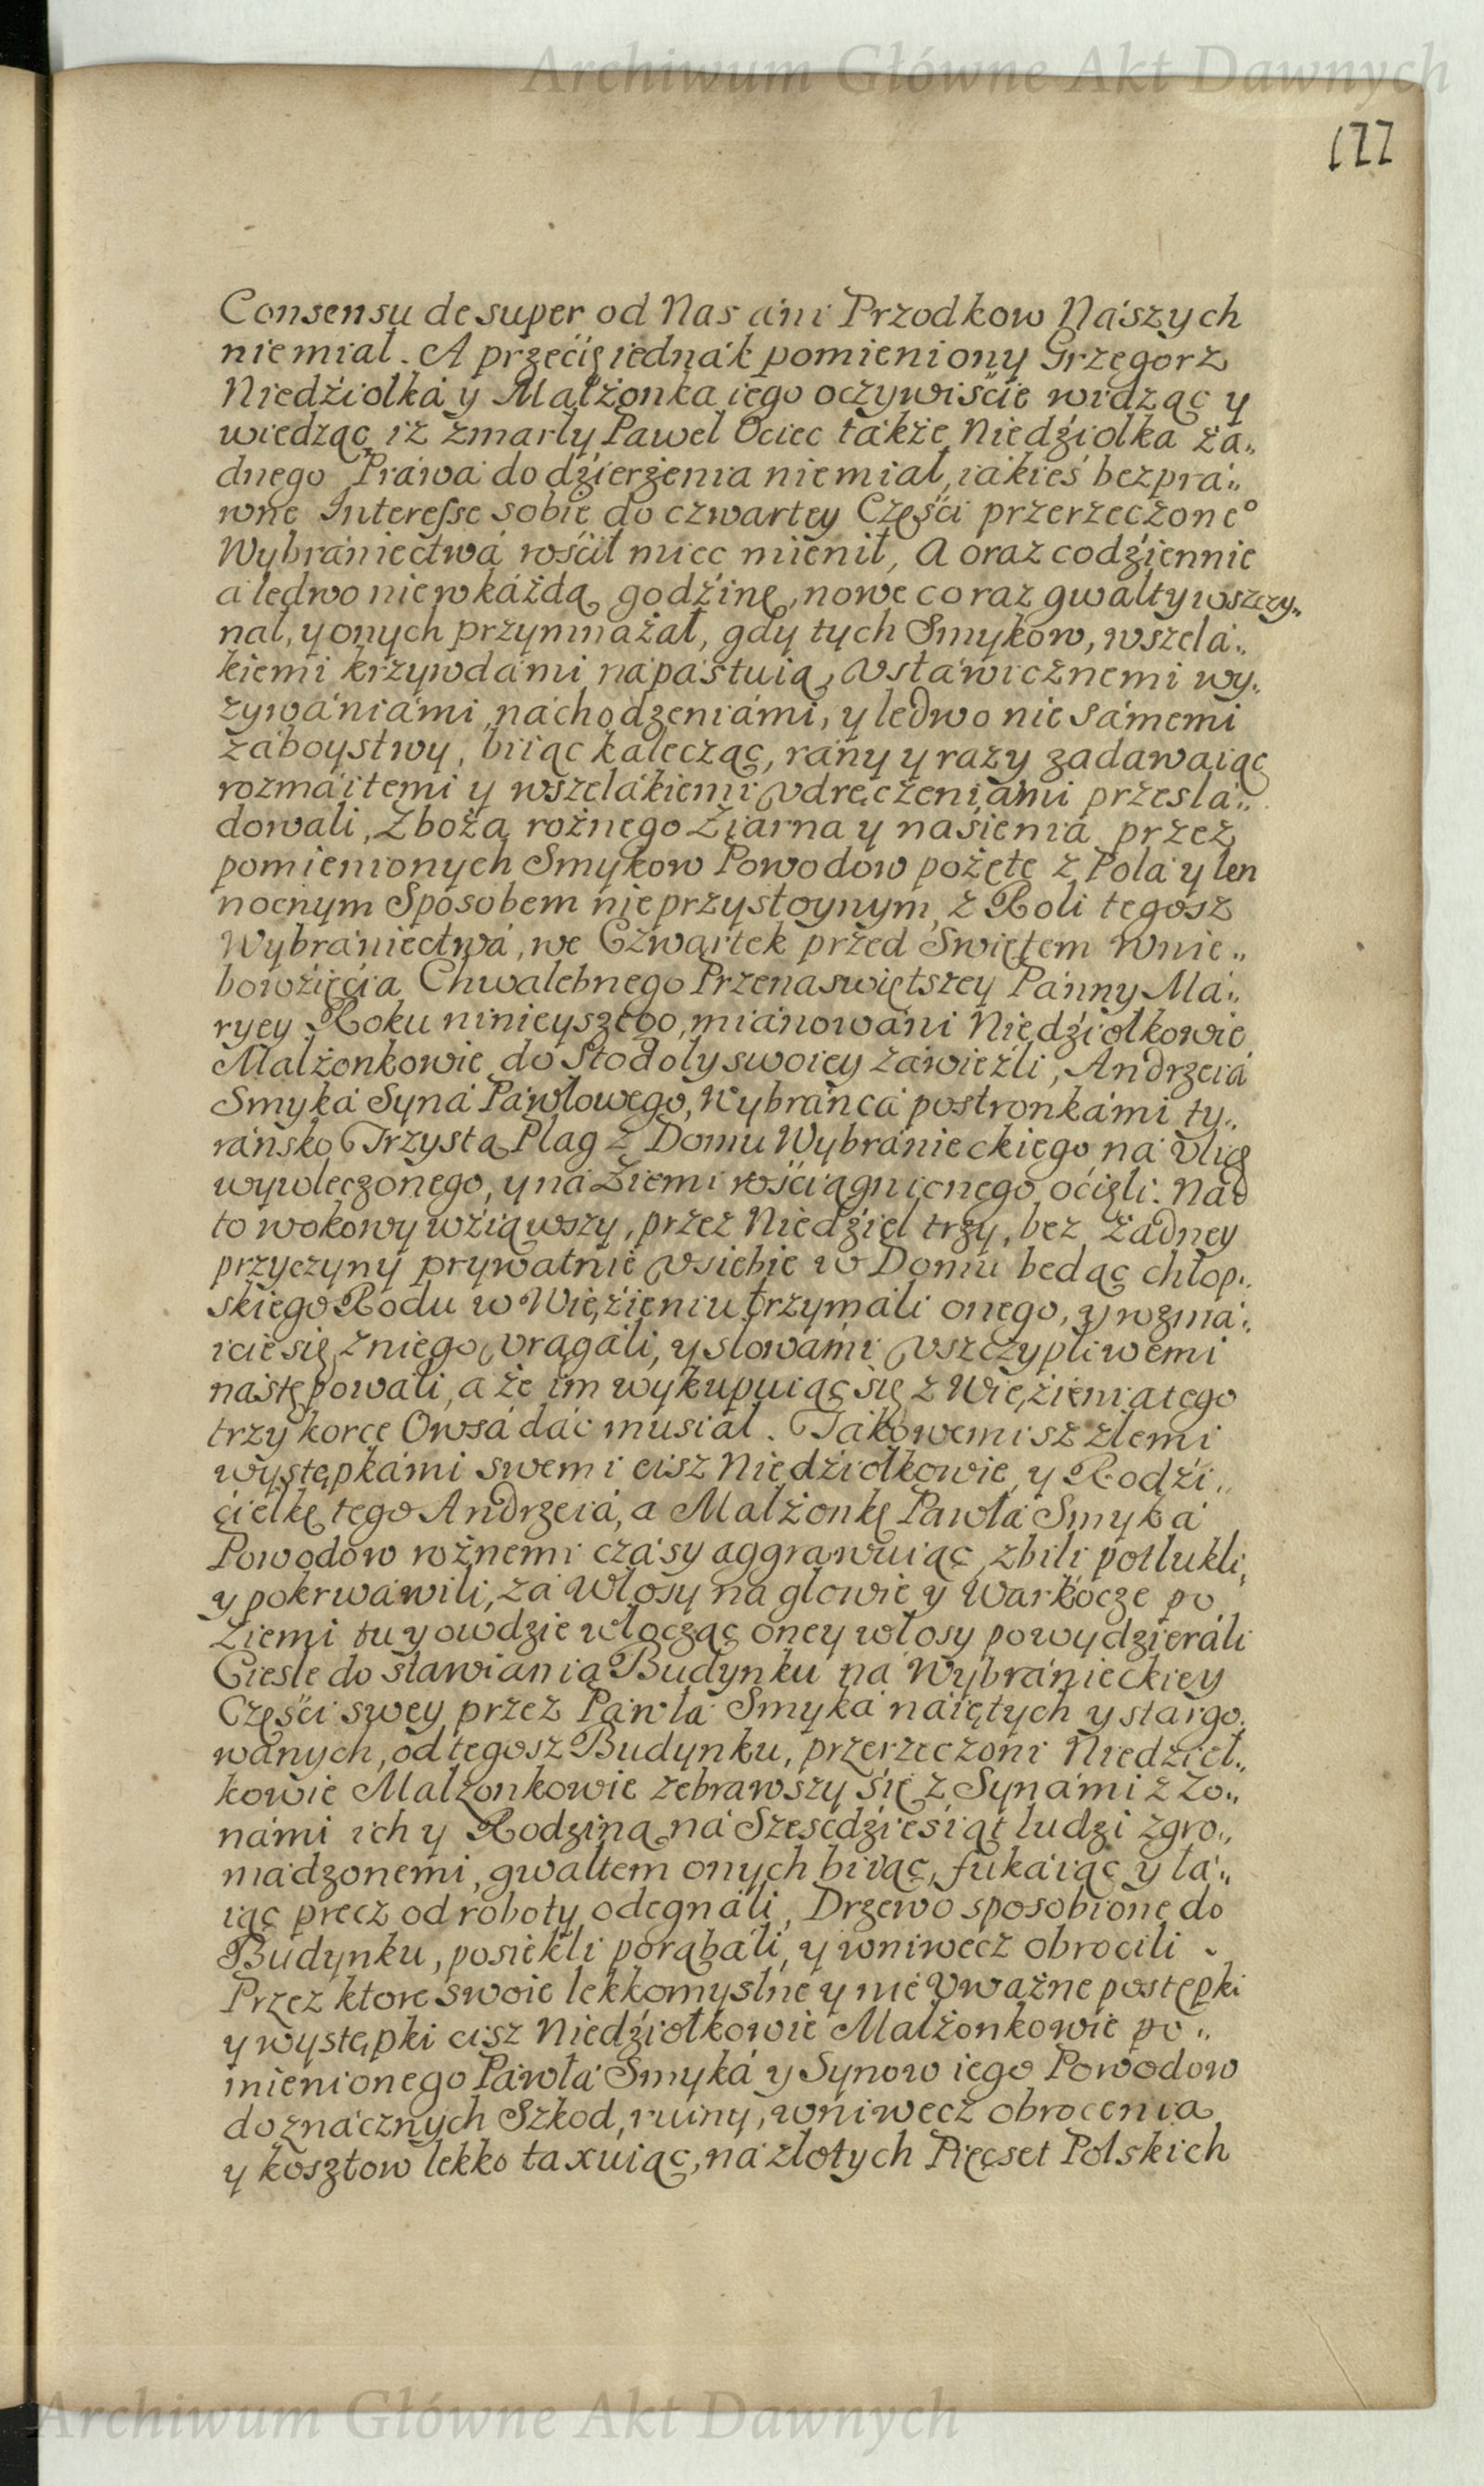 Archiwum Główne Akt Dawnych
177
Consensu desuper od Nas áni Przodkow Nászych
niemial. A przećię iednák pomieniony Grzegorz
Niedźiolká y Małżonka iego oczywiśćie widząc y
wiedząc iż zmarły Paweł Ociec tákże Niedźiolka żá„
dnego Práwá do dźierżenia niemiał, iákieś bezprá„
wne Interesse sobie do czwartey Częśći przerzeczone°
Wybraniectwá rośćił miec mienił, A oraz codźiennie
a ledwo nie w káżdą godźinę, nowe co raz gwałty wszczy„
nał, y onych przymnażał, gdy tych Smykow, wszelá„
kiemi krzywdámi nápástuią, Vstáwicznemi wy„
zywániámi, náchodzeniámi, y ledwo nie sámemi
zaboystwy, biiąc kalecząc, rány y razy zadawaiąc
rozmáitemi y wszelákiemi vdręczeniámi przeslá„
dowali, Zboża rożnego Ziarna y naśienia przez
pomienionych Smykow Powodow pożęte z Polá y len
nocnym Sposobem nieprzystoynym z Roli tegosz
Wybraniectwá, we Czwartek przed Swiętem Wnie„
bowźięćia Chwalebnego Przenaswiętszey Pánny Má„
ryey Roku ninieyszego, mianowáni Niedźiołkowie
Malżonkowie do Stodoły swoiey záwieźli, Andrzeiá
Smyká Syná Páwłowego, Wybráncá postronkámi ty„
ránsko Trzystą Plag z Domu Wybránieckiego ná Vlicę
wywleczonego, y ná Ziemi rośćiągnionego oćięli. Nád
to w okowy wźiąwszy, przez Niedźiel trzy, bez żadney
przyczyny prywatnie v siebie w Domu bedąc chłop„
skiego Rodu w Więźieniu trzymáli onego, y rozmá„
icie się z niego vrągáli, y slowámi vszczypliwemi
następowáli, a że im wykupuiąc się z Więźienia tego
trzy korce Owsá dáć musiał. Tákowemisz zlemi
występkámi swemi cisz Niedźiołkowie y Rodźi„
ćielkę tego Andrzeiá, a Malżonkę Páwłá Smyká
Powodow rożnemi czásy aggrawuiąc, zbili potłukli,
y pokrwáwili, zá Włosy na głowie y Warkocze po
Ziemi tu y owdzie włocząc oney włosy powydzieráli
Cieśle do stawiania Budynku ná Wybránieckiey
Częśći swey przez Páwłá Smyká náiętych y stargo„
wánych, od tegosz Budynku, przerzeczoni Niedzioł„
kowie Malżonkowie zebrawszy się z Synámi z Zo„
námi ich y Rodziną ná Szescdźieśiąt ludzi zgro„
madzonemi, gwałtem onych biiąc, fukáiąc y łá„
iąc precz od roboty odegnáli, Drzewo sposobione do
Budynku, posiekli porąbáli, y wniwecz obrocili.
Przez ktore swoie lekkomyslne y nie Vważne postępki
y występki cisz Niedźiołkowie Malżonkowie po„
mienionego Páwłá Smyká y Synow iego Powodow
do znácznych Szkod, ruiny, wniwecz obrocenia
y kosztow lekko taxuiąc, ná złotych Pięcset Polskich
Archiwum Główne Akt Dawnych